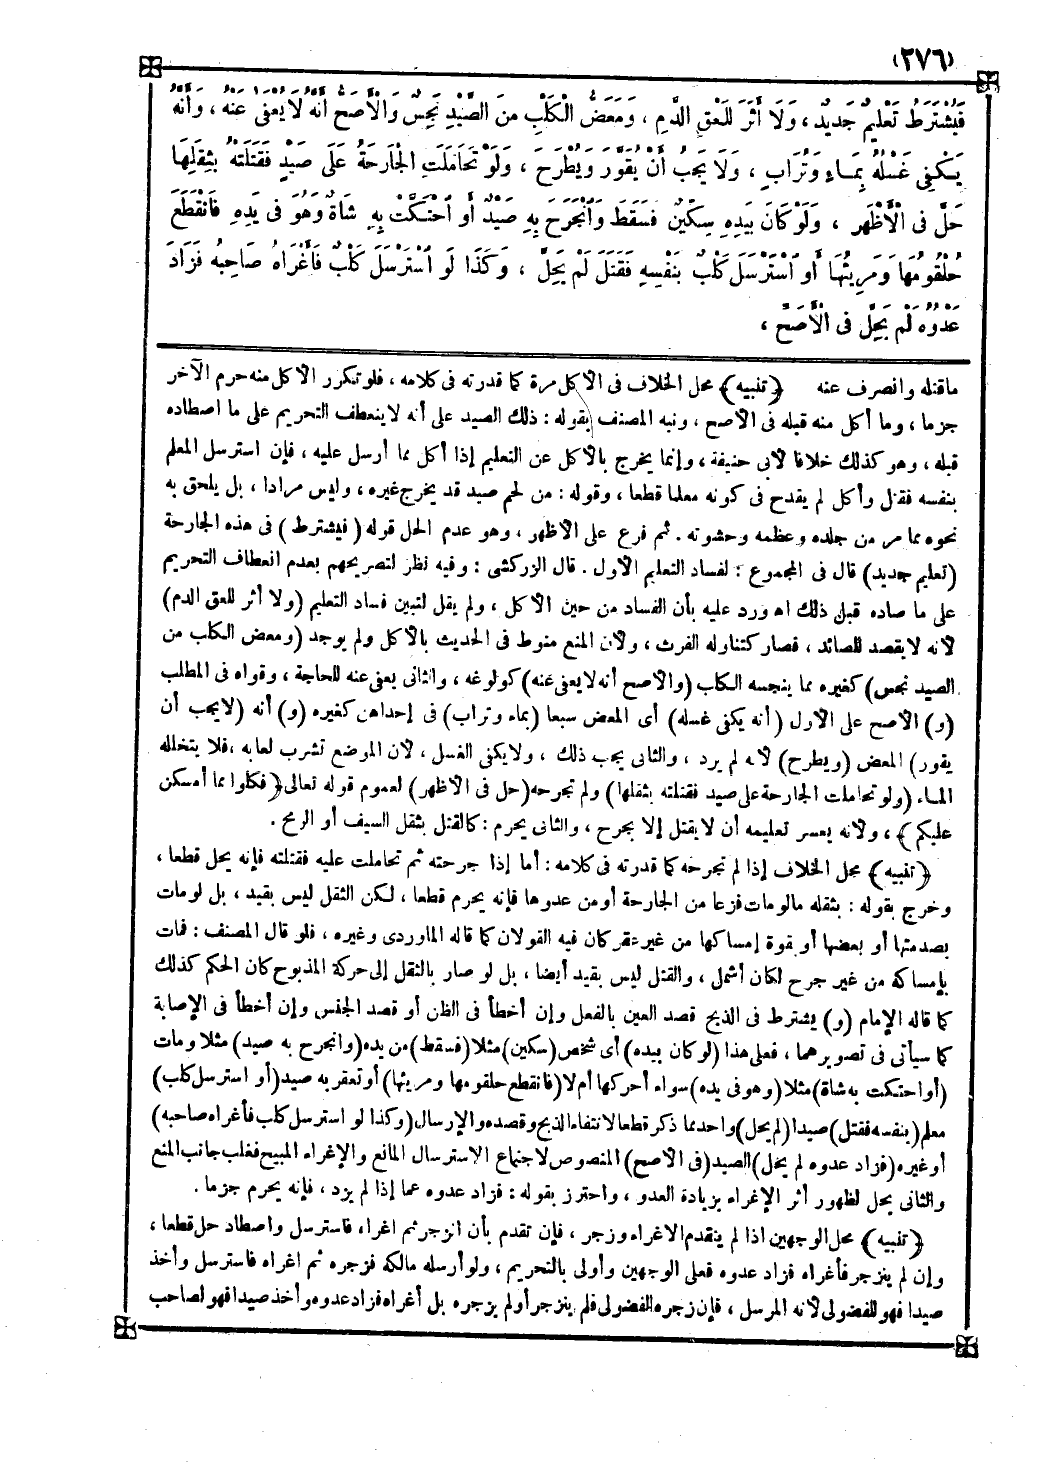 (٢٧٦)
فَيُشْتَرَطُ تَعْلِيمٌ جَدِيدٌ ، وَلَا أَثَرَ لِلَعْقِ الدَّمِ ، وَمَعَضُّ الْكَلْبِ مِنَ الصَّيْدِ نَجِسٌ وَالْأَصَحُّ أَنَّهُ لَا يُعْفَى عَنْهُ ، وَأَنَّهُ
يَكْفِي غَسْلُهُ بِمَاءٍ وَتُرَابٍ ، وَلَا يَجِبُ أَنْ يُقَوَّرَ وَيُطْرَحَ ، وَلَوْ تَحَامَلَتِ الْجَارِحَةُ عَلَى صَيْدٍ فَقَتَلَتْهُ بِثِقَلِهَا
حَلَّ فِى الْأَظْهَرِ ، وَلَوْ كَانَ بِيَدِهِ سِكِّينٌ فَسَقَطَ وَانْجَرَحَ بِهِ صَيْدٌ أَوِ احْتَكَّتْ بِهِ شَاةٌ وَهُوَ فِى يَدِهِ فَانْقَطَعَ
حُلْقُومُهَا وَمَرِيئُهَا أَوِ اسْتَرْسَلَ كَلْبٌ بِنَفْسِهِ فَقَتَلَ لَمْ يَحِلَّ ، وَكَذَا لَوِ اسْتَرْسَلَ كَلْبٌ فَأَغْرَاهُ صَاحِبُهُ فَزَادَ
عَدْوُهُ لَمْ يَحِلَّ فِى الْأَصَحِّ ،
ماقتله وانصرف عنه ﴿تنبيه﴾ محل الخلاف فى الأكل مرة كما قدرته فى كلامه ، فلو تكرر الأكل منه حرم الآخر
جزما ، وما أكل منه قبله فى الأصح ، ونبه المصنف بقوله : ذلك الصيد على أنه لا ينعطف التحريم على ما اصطاده
قبله ، وهو كذلك خلافا لأبى حنيفة ، وإنما يخرج بالأكل عن التعليم إذا أكل مما أرسل عليه ، فإن استرسل المعلم
بنفسه فقتل وأكل لم يقدح فى كونه معلما قطعا ، وقوله : من لحم صيد قد يخرج غيره ، وليس مرادا ، بل يلحق به
نحوه مما مر من جلده وعظمه وحشوته . ثم فرع على الأظهر ، وهو عدم الحل قوله (فيشترط) فى هذه الجارحة
(تعليم جديد) قال فى المجموع : لفساد التعليم الأول . قال الزركشى : وفيه نظر لتصريحهم بعدم انعطاف التحريم
على ما صاده قبل ذلك اه ورد عليه بأن الفساد من حين الأكل ، ولم يقل لتبين فساد التعليم (ولا أثر للعق الدم)
لأنه لا يقصد للصائد ، فصار كتناوله الفرث ، ولأن المنع منوط فى الحديث بالأكل ولم يوجد (ومعض الكلب من
الصيد نجس) كغيره مما ينجسه الكلب (والأصح أنه لا يعفى عنه) كولوغه ، والثانى يعفى عنه للحاجة ، وقواه فى المطلب
(و) الأصح على الأول (أنه يكفى غسله) أى المعض سبعا (بماء وتراب) فى إحداهن كغيره (و) أنه (لا يجب أن
يقور) المعض (ويطرح) لأنه لم يرد ، والثانى يجب ذلك ، ولا يكفى الغسل ، لأن الموضع تشرب لعابه ، فلا يتخلله
الماء (ولو تحاملت الجارحة على صيد فقتلته بثقلها) ولم تجرحه (حل فى الأظهر) لعموم قوله تعالى ﴿فكلوا مما أمسكن
عليكم﴾ ، ولأنه يعسر تعليمه أن لا يقتل إلا بجرح ، والثانى يحرم : كالقتل بثقل السيف أو الرمح .
﴿تنبيه﴾ محل الخلاف إذا لم تجرحه كما قدرته فى كلامه : أما إذا جرحته ثم تحاملت عليه فقتلته فإنه يحل قطعا ،
وخرج بقوله : بثقله مالو مات فزعا من الجارحة أو من عدوها فإنه يحرم قطعا ، لكن الثقل ليس بقيد ، بل لو مات
بصدمتها أو بعضها أو بقوة إمساكها من غير عقر كان فيه القولان كما قاله الماوردى وغيره ، فلو قال المصنف : فمات
بإمساكه من غير جرح لكان أشمل ، والقتل ليس بقيد أيضا ، بل لو صار بالثقل إلى حركة المذبوح كان الحكم كذلك
كما قاله الإمام (و) يشترط فى الذبح قصد العين بالفعل وإن أخطأ فى الظن أو قصد الجنس وإن أخطأ فى الإصابة
كما سيأتى فى تصويرهما ، فعلى هذا (لو كان بيده) أى شخص (سكين) مثلا (فسقط) من يده (وانجرح به صيد) مثلا ومات
(أو احتكت به شاة) مثلا (وهو فى يده) سواء أحركها أم لا (فانقطع حلقومها ومريئها) أو تعقر به صيد (أو استرسل كلب)
معلم (بنفسه فقتل) صيدا (لم يحل) واحد مما ذكر قطعا لانتفاء الذبح وقصده والإرسال (وكذا لو استرسل كلب فأغراه صاحبه)
أو غيره (فزاد عدوه لم يحل) الصيد (فى الأصح) المنصوص لاجتماع الاسترسال المانع والإغراء المبيح فغلب جانب المنع
والثانى يحل لظهور أثر الإغراء بزيادة العدو ، واحترز بقوله : فزاد عدوه عما إذا لم يزد ، فإنه يحرم جزما .
﴿تنبيه﴾ محل الوجهين اذا لم يتقدم الاغراء وزجر ، فإن تقدم بأن انزجر ثم اغراه فاسترسل واصطاد حل قطعا ،
وإن لم ينزجر فأغراه فزاد عدوه فعلى الوجهين وأولى بالتحريم ، ولو أرسله مالكه فزجره ثم اغراه فاسترسل وأخذ
صيدا فهو للفضولى لأنه المرسل ، فإن زجره الفضولى فلم ينزجر أو لم يزجره بل أغراه فزاد عدوه وأخذ صيدا فهو لصاحب